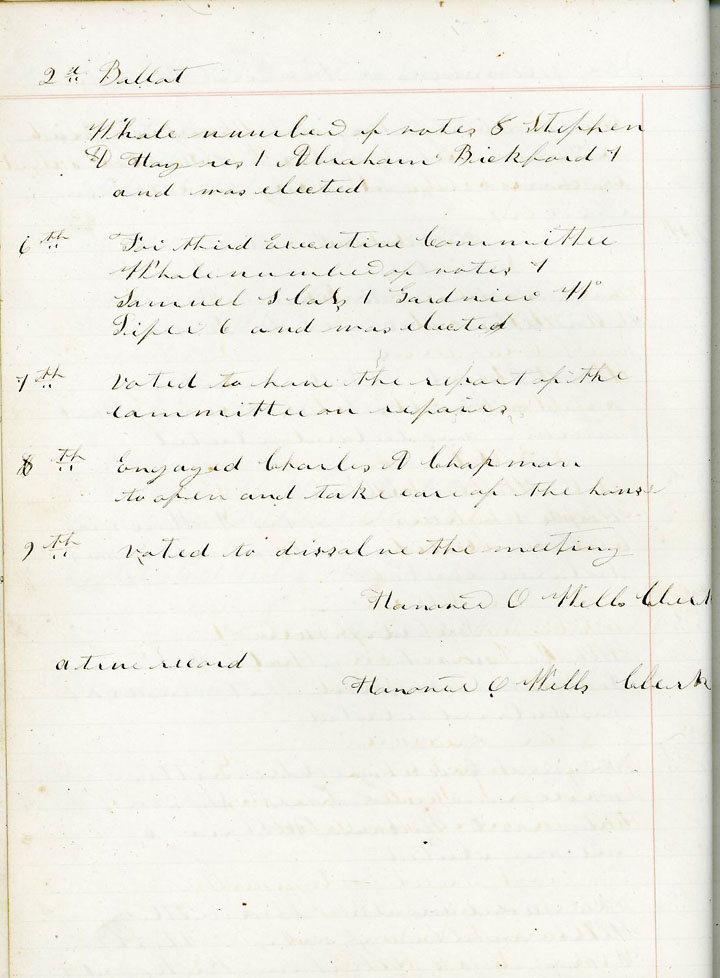 2d Ballot
Whole number of votes 8 Stephen
D Haynes 1 Abraham Bickford 7
and was elected
6th For third Executive Committee
Whole number of votes 7
Samuel 1 Gardnier W
Piper 6 and was elected
7th Voted to have the report of the
committee on repairs
8th Engaged Charles A Chapman
to open and take care of the house
9th Voted to dissolve the meeting
Hanover O Wells Clerk
a true record
Hanover O Wells Clerk